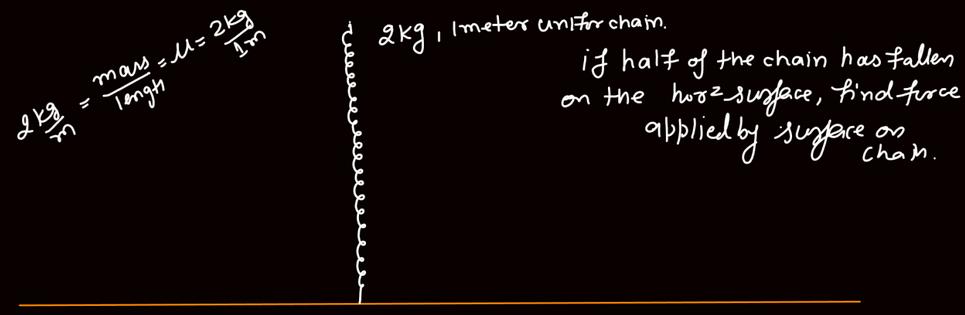 2kg/m = mass/length = μ = 2kg/1m
2kg, 1meter unifor chain.
if half of the chain has fallen
on the horz surface, find force
applied by surface on
chain.